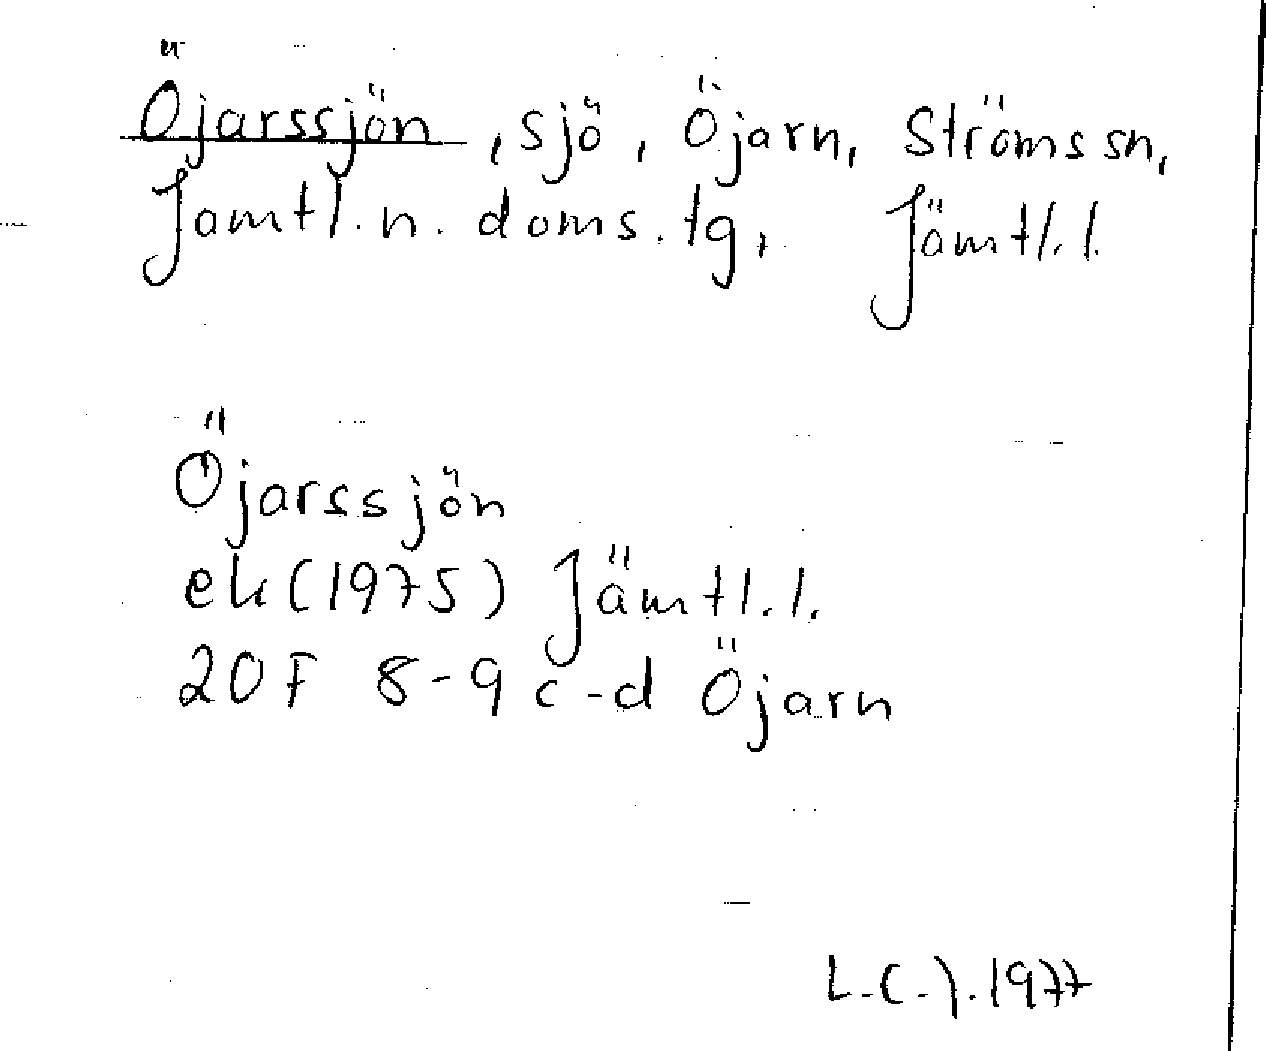 Öjarssjön, sjö, Öjarn, Ströms sn,
Jämtl. n. doms. tg, Jämtl. l.
Öjarssjön
ek (1975) Jämtl. l.
20F 8-9 c-d Öjarn
L.C.J. 1977